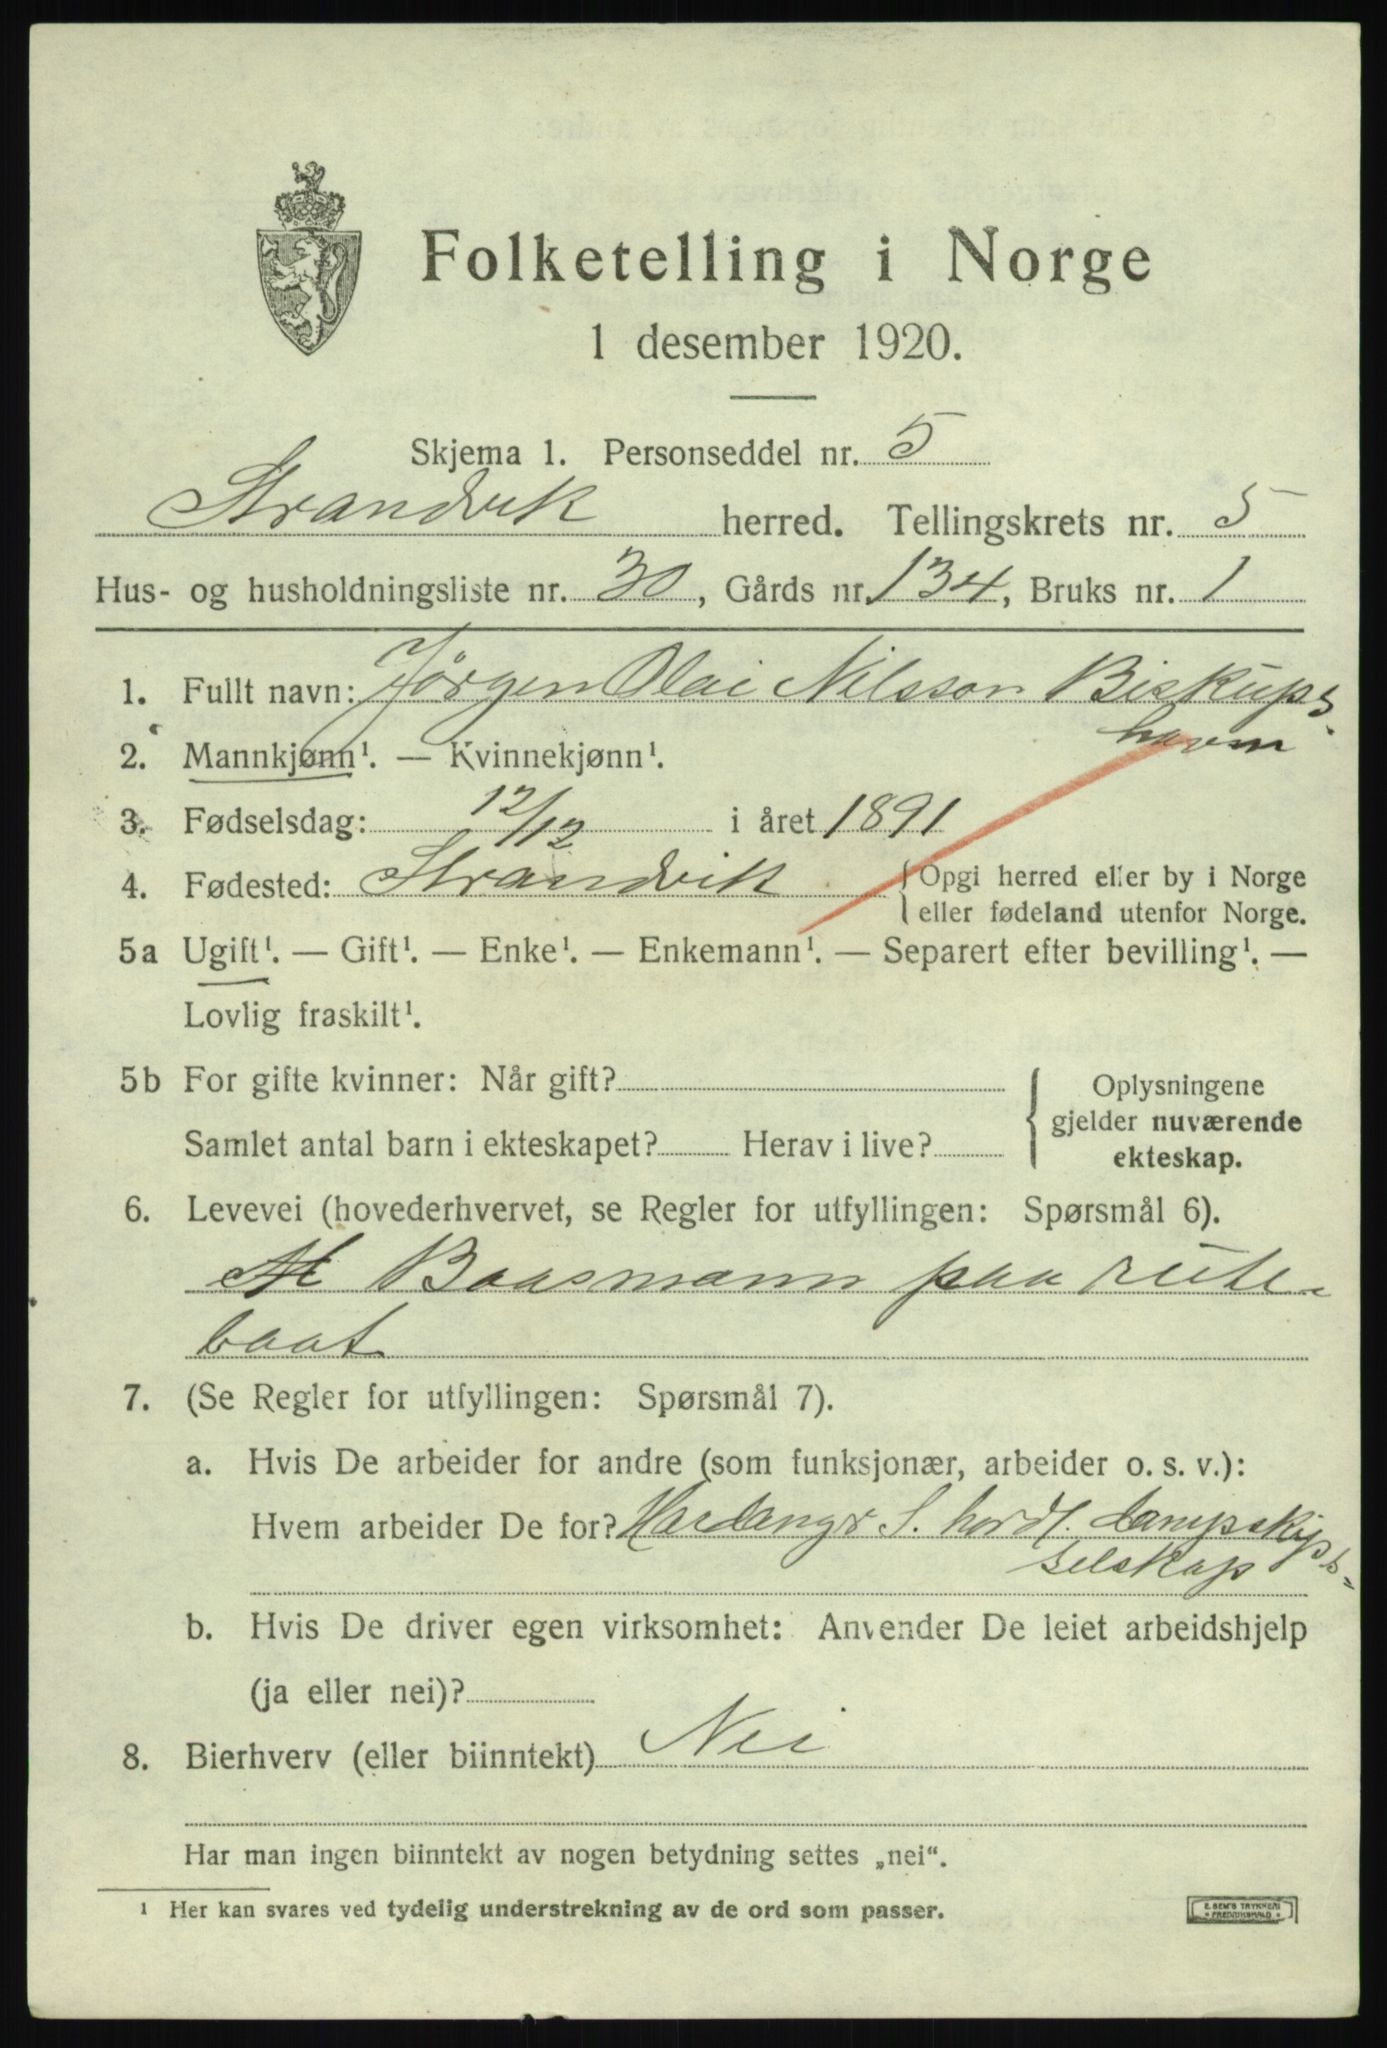 Folketelling i Norge
1 desember 1920.
Skjema 1. Personseddel nr. 5
Strandvik herred. Tellingskrets nr. 5
Hus- og husholdningsliste nr. 30, Gårds nr. 134, Bruks nr. 1
1. Fullt navn: Jörgen Olai Nilsson Biskups
havn
2. Mannkjønn¹. — Kvinnekjønn¹.
3. Fødselsdag: 12/12 i året 1891
4. Fødested: Strandvik {Opgi herred eller by i Norge
eller fødeland utenfor Norge.
5a Ugift¹. — Gift¹. — Enke¹. — Enkemann¹. — Separert efter bevilling¹. —
Lovlig fraskilt¹.
5b For gifte kvinner: Når gift?
Samlet antal barn i ekteskapet? Herav i live?
Oplysningene
gjelder nuværende
ekteskap.
6. Levevei (hovederhvervet, se Regler for utfyllingen: Spørsmål 6).
Baasmann paa rute-
baat
7. (Se Regler for utfyllingen: Spørsmål 7).
a. Hvis De arbeider for andre (som funksjonær, arbeider o. s. v.):
Hvem arbeider De for? S. hordl. dampskips-
selskap
b. Hvis De driver egen virksomhet: Anvender De leiet arbeidshjelp
(ja eller nei)?
8. Bierhverv (eller biinntekt) Nei
Har man ingen biinntekt av nogen betydning settes „nei“.
¹ Her kan svares ved tydelig understrekning av de ord som passer.
E. SEM'S TRYKKERI
FREDRIKSHALD